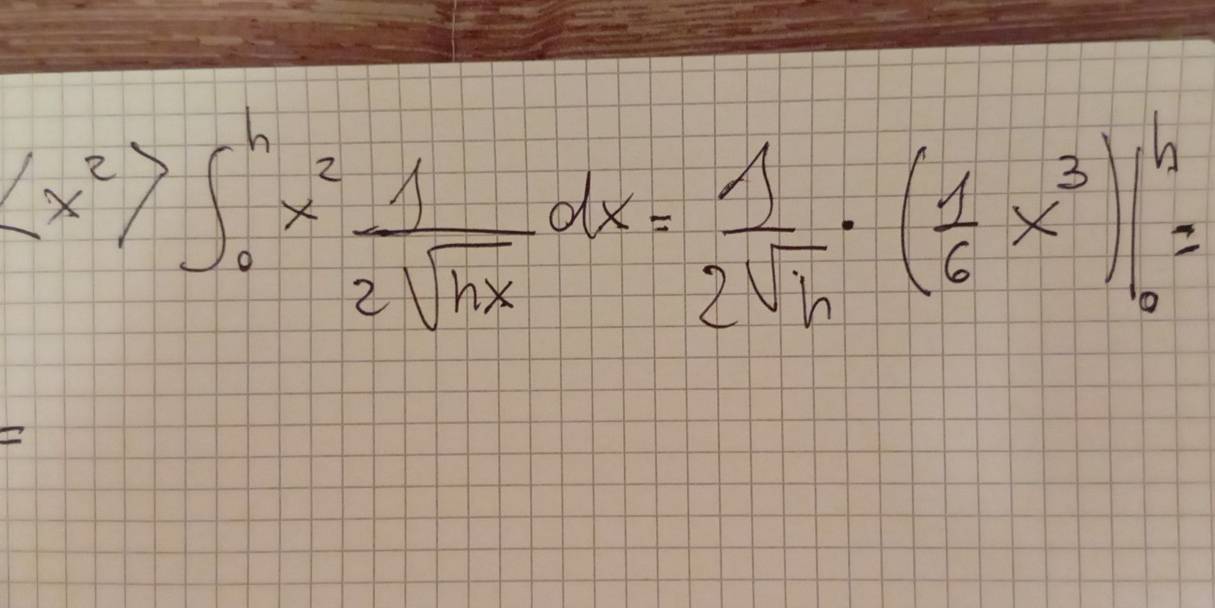 ⟨x²⟩ ∫₀ʰ x² 1/(2√(hx)) dx = 1/(2√h) · (1/6 x³)|₀ʰ =
=